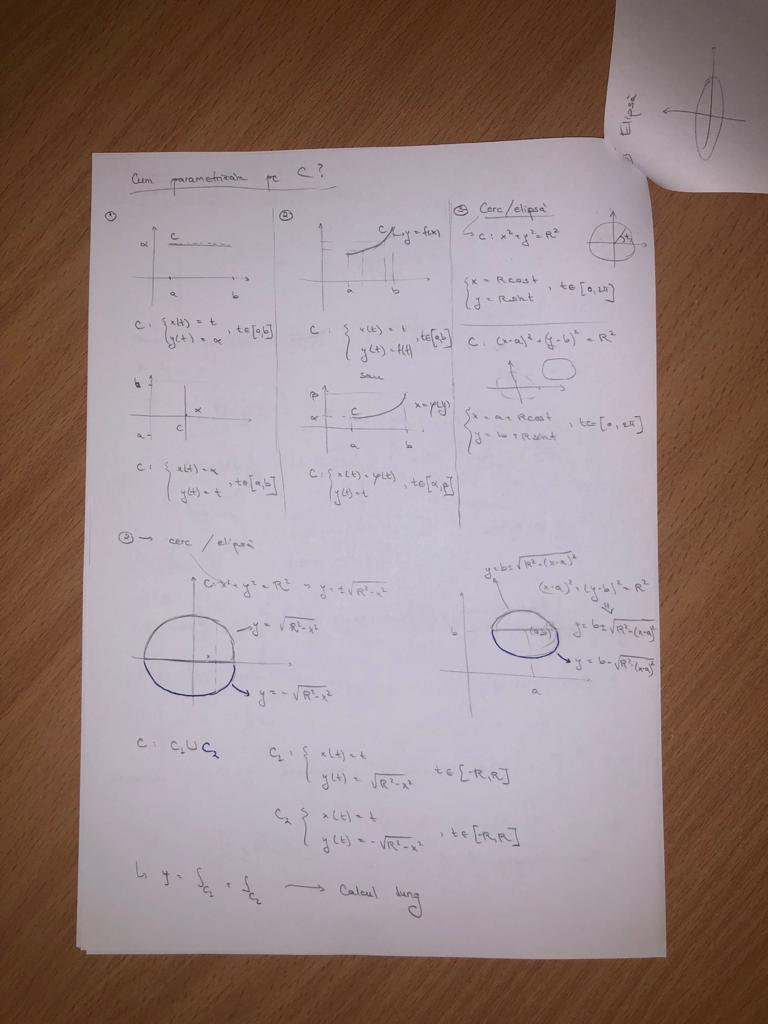 Cum parametrizăm pe C?
①
α
C
a b
C: { x(t) = t
y(t) = α , t∈[a,b]
b
a
α
C
C: { x(t) = α
y(t) = t , t∈[a,b]
②
C y=f(x)
a b
C: { x(t) = t
y(t) = f(t) , t∈[a,b]
sau
β
α
C
x=φ(y)
a b
C: { x(t) = φ(t)
y(t) = t , t∈[α,β]
③ Cerc/elipsă
C: x² + y² = R²
t
{ x = R cost
y = R sint , t∈[0,2π]
C: (x-a)² + (y-b)² = R²
{ x = a + R cost
y = b + R sint , t∈[0,2π]
Elipsă
② → cerc / elipsă
C: x² + y² = R² ⇒ y = ±√R²-x²
→ y = √R²-x²
→ y = -√R²-x²
y = b+√R²-(x-a)²
(x-a)² + (y-b)² = R²
⇓
y = b±√R²-(x-a)²
b
(a,b)
→ y = b-√R²-(x-a)²
a
C: C₁∪C₂
C₁: { x(t) = t
y(t) = √R²-x² t∈[-R,R]
C₂ { x(t) = t
y(t) = -√R²-x² , t∈[-R,R]
↳ y = ∫C₂ + ∫C₂ → Calcul lung